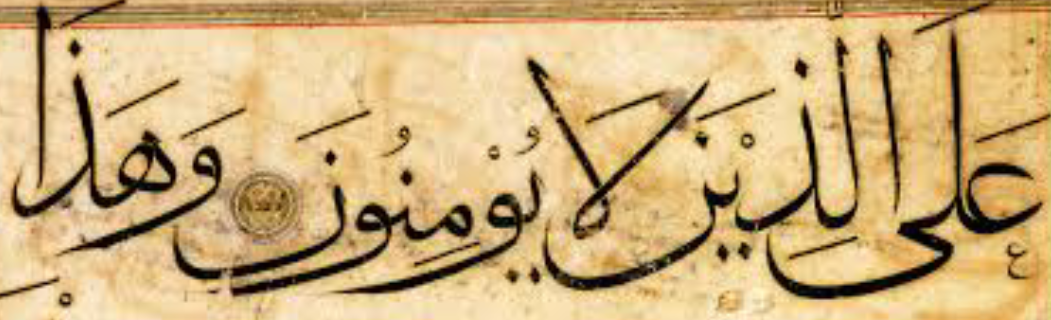 عَلَى الَّذِيْنَ لَا يُوْمِنُونَ وَهَذَا